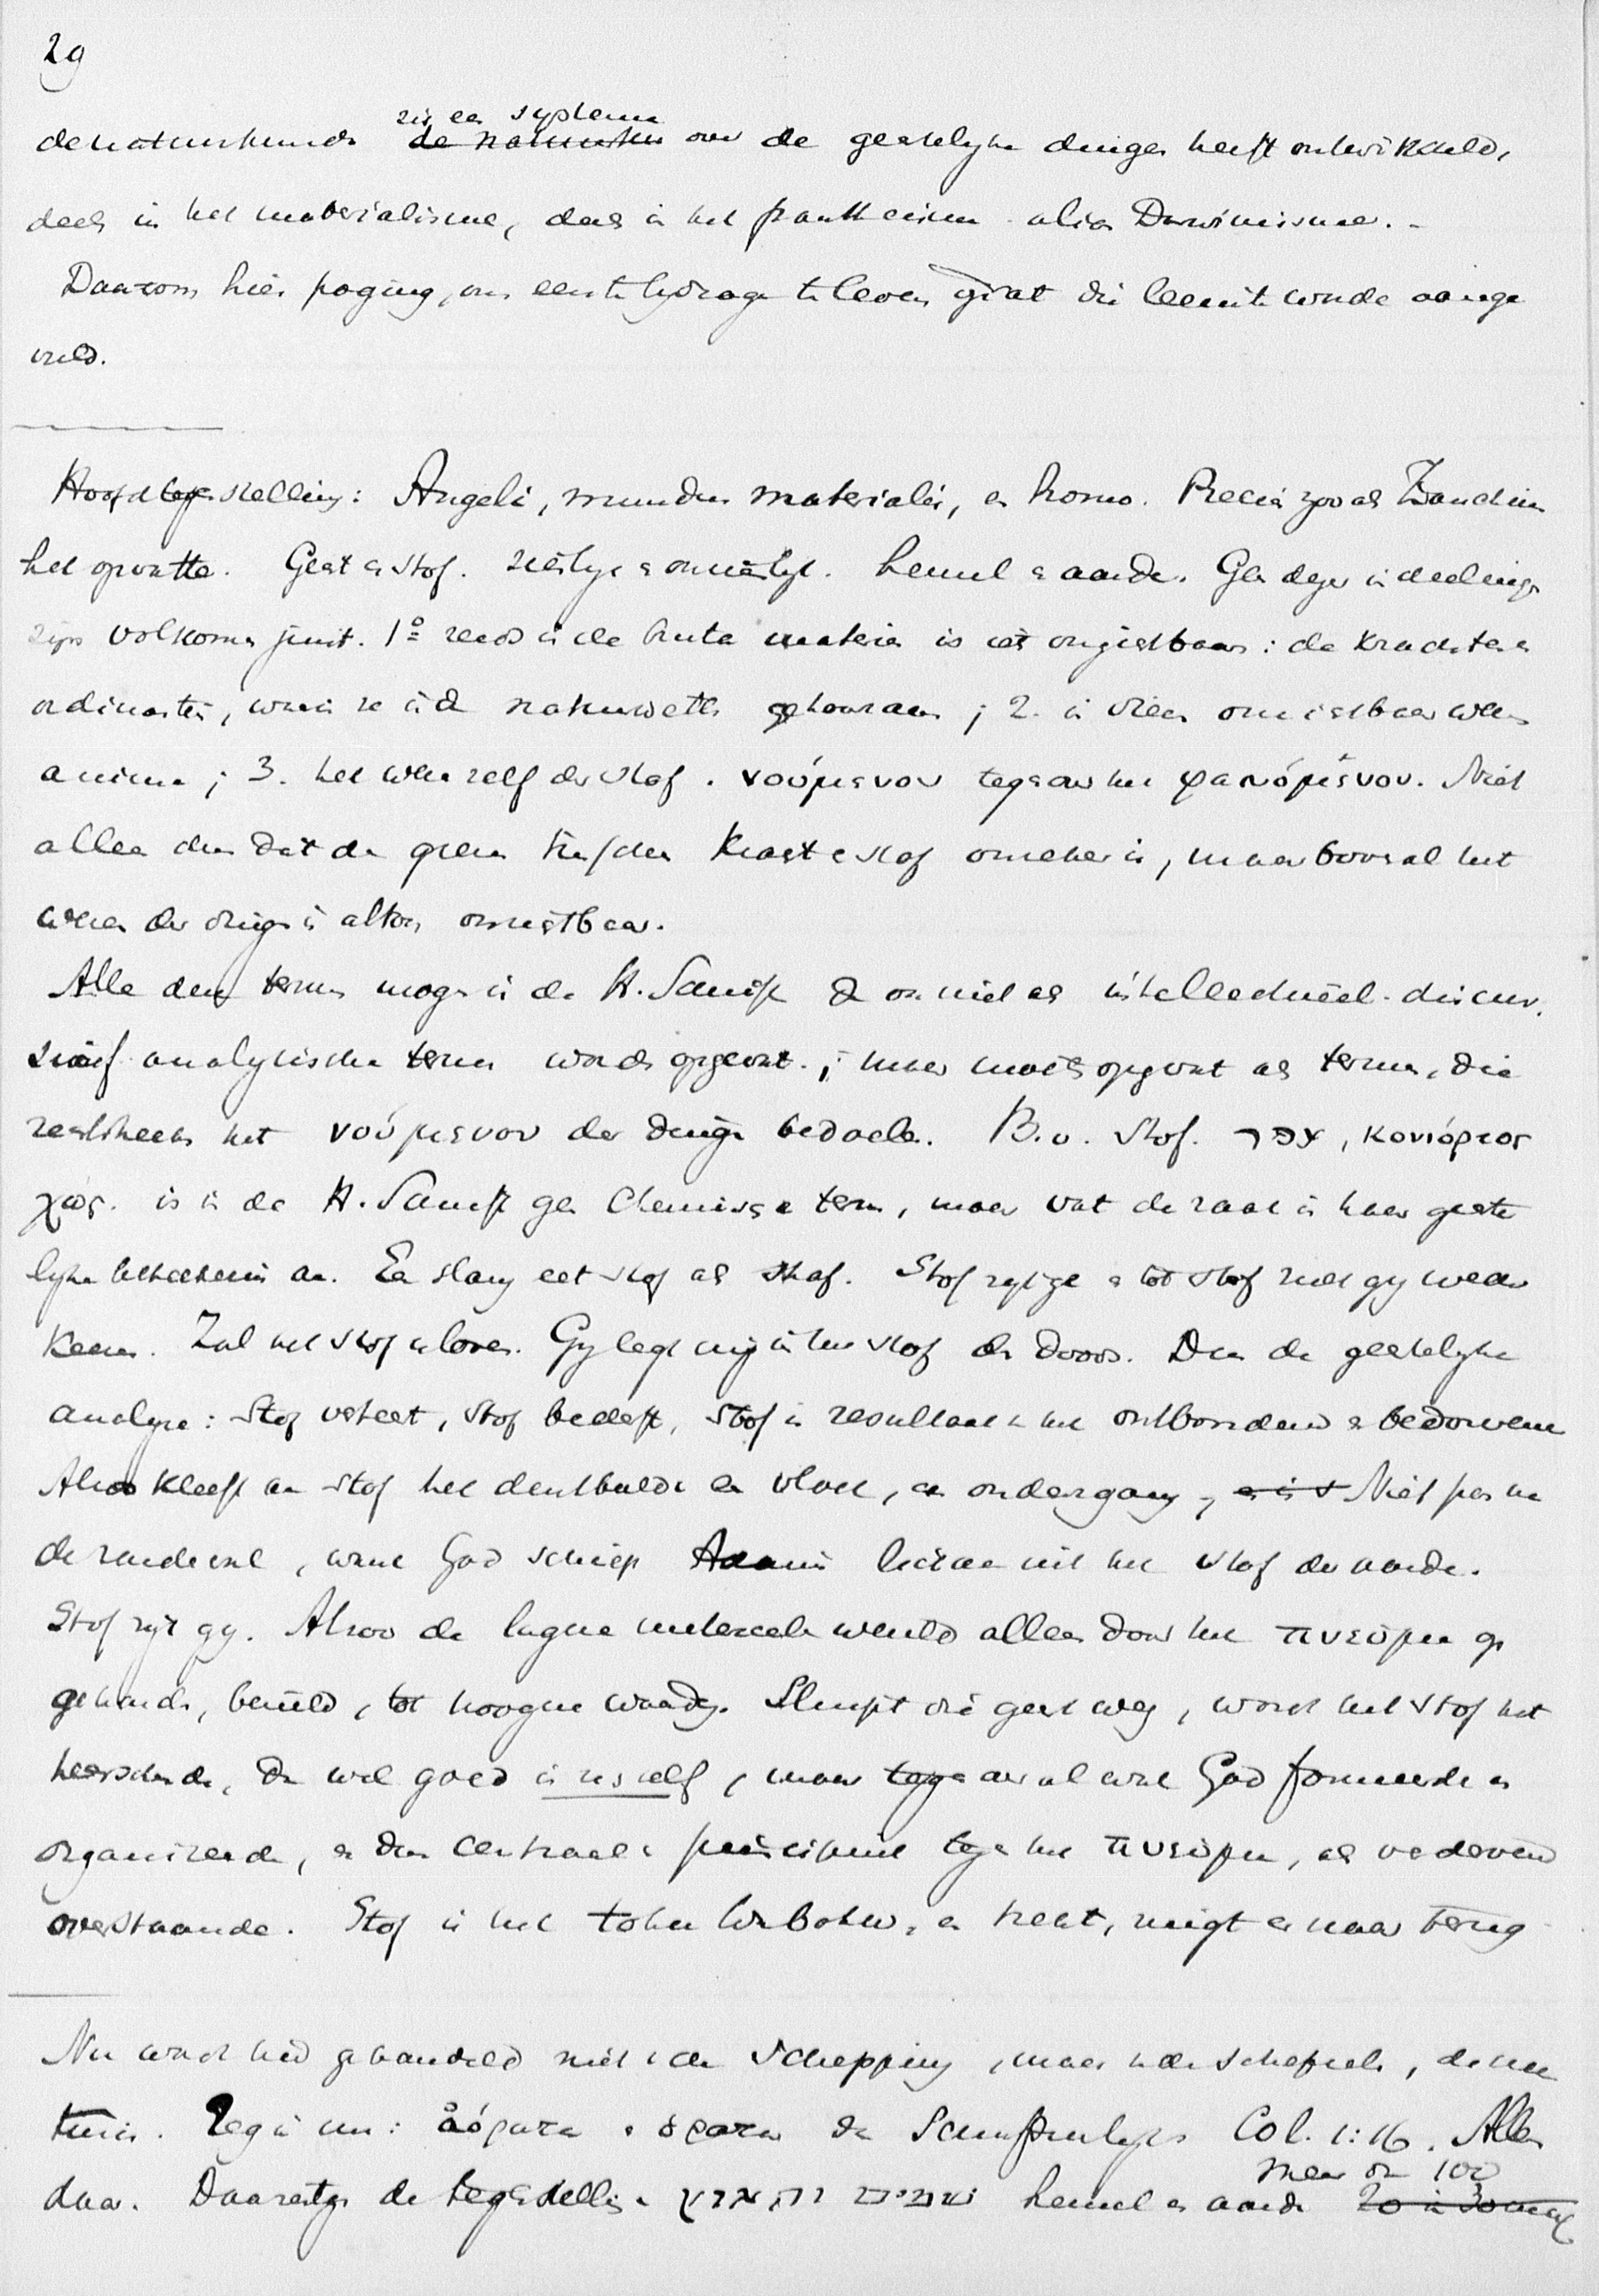 29
zijn een systeem
de natuurkunde de natuurkun over de geestelyke dingen heeft ontwikkeld,
deels in het materialisme, deels in het pantheisme alias Darwinisme. -
Daarom hier poging, om eerste bydrage te leveren dat die leemte worde aange
vuld.
Hoofdtegenstelling: Angeli, mundus materialis, en homo. Precies zooals Zanchius
het opvatte. Geest en stof. zienlyk en onzienlyk. hemel en aarde. Geen dezer indeelingen
zijn volkomen juist. 1º reeds in de bruta materia is iets onzichtbaars: de krachten en
ordinantiën, waarin ze in de natuurwetten gehoorzamen; 2. in vleesch onzichtbaar wezen
anima; 3. het wezen zelf der stof. νούμενον tegenover het φαινόμενον. Niet
alleen dus dat de grens tusschen Kracht en stof onzeker is, maar vooral het
wezen der dingen is altoos onzichtbaar.
Alle deze termen mogen in de H. Schrift dan ook niet als intellectueel-discur-
sief analytische termen worden opgevat; maar moeten opgevat als termen, die
rechtstreeks het νούμενον der dingen bedoelen. B.v. Stof. עפר, κονιορτος
χοῦς. is in de H. Schrift geen Chemische term, maar vat de zaak in haar geeste
lyke beteekenis aan. Een slang eet stof als stof. Stof zyt ge en tot stof zult gy weder
keeren. Zal het stof u loven. Gy legt my in het stof des doods. Dus de geestelyke
analyse: Stof vertreet, stof bedekt, stof is resultaat van het ontbondene en bedorvene
Alzoo kleeft aan stof het denkbeeld van vloek, en ondergang, en is s Niet pas na
de zondeval, want God schiep Adams lichaam uit het stof der aarde.
Stof zyt gy. Alzoo de lagere materieele wereld alleen door het πνεῦμα op
gehouden, bezield, tot hoogere waardy. Sluipt die geest weg, wordt het stof het
heerschende, dan wel goed in zichzelf, maar tegenover al wat God formeerde en
organizeerde, en dus centraal en principieel tegen het πνεῦμα, als verdervend
overstaande. Stof is het tohu wabohu, en trekt, neigt er naar terug
Nu wordt hier gehandeld niet van de Schepping, maar van de schepsels, de crea
turis. Leg in nu: ἀόρατα & ὁρατα de Schriftuurlyke Col. 1:16. Alleen
meer dan 100
daar. Daarentegen de tegenstelling השמים והארץ hemel en aarde 20 à 30 maal